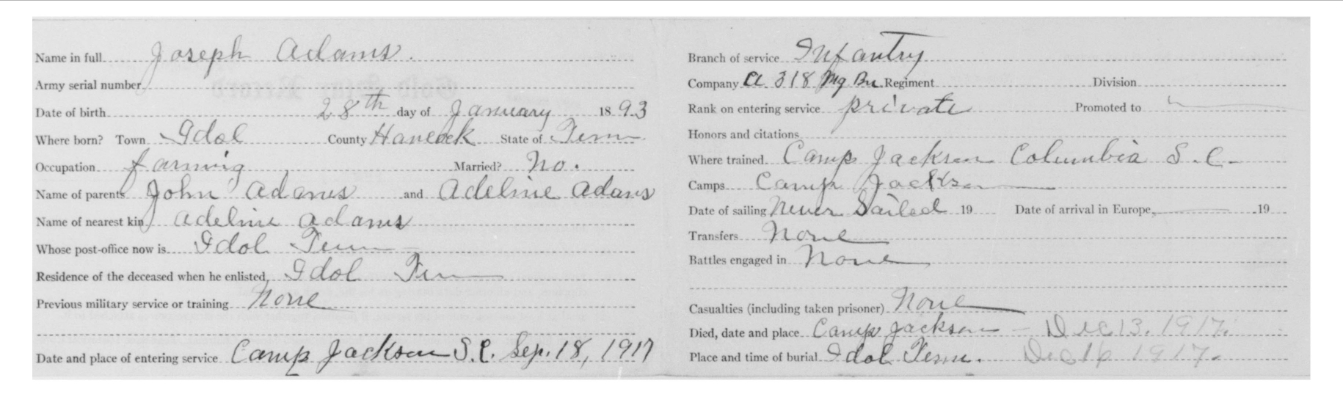 Name in full Joseph Adams.
Army serial number
Date of birth 28th day of January 1893
Where born? Town Idol County Hancock State of Tenn
Occupation farming Married? No.
Name of parents John Adams and Adeline Adams
Name of nearest kin Adeline Adams
Whose post-office now is Idol Tenn
Residence of the deceased when he enlisted Idol Tenn
Previous military service or training None
Date and place of entering service Camp Jackson S.C. Sep. 18, 1917
Branch of service Infantry
Company A 318 Mg Bn Regiment Division
Rank on entering service private Promoted to
Honors and citations
Where trained Camp Jackson Columbia S.C.
Camps Camp Jackson
Date of sailing Never Sailed 19 Date of arrival in Europe, 19
Transfers None
Battles engaged in None
Casualties (including taken prisoner) None
Died, date and place Camp Jackson - Dec 13. 1917.
Place and time of burial Idol Tenn. Dec 16 1917.